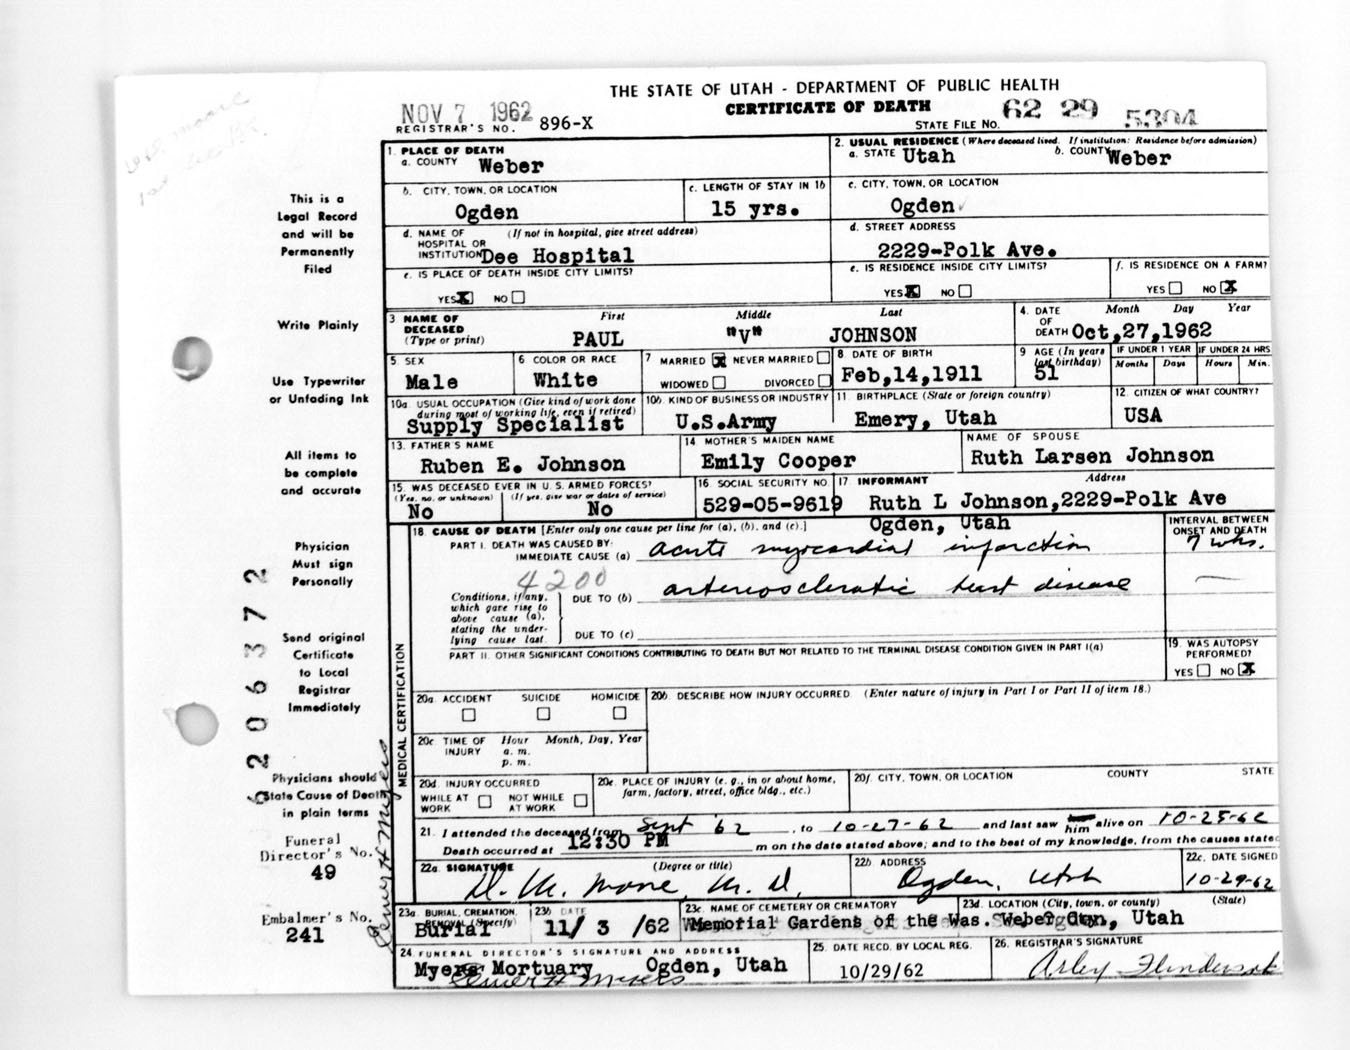 THE STATE OF UTAH - DEPARTMENT OF PUBLIC HEALTH
NOV 7 1962
CERTIFICATE OF DEATH
62 29 5304
REGISTRAR'S NO. 896-X
STATE FILE NO.
1. PLACE OF DEATH
a. COUNTY Weber
2. USUAL RESIDENCE (Where deceased lived. If institution: Residence before admission)
a. STATE Utah b. COUNTY Weber
b. CITY, TOWN, OR LOCATION
Ogden
c. LENGTH OF STAY IN 1b
15 yrs.
c. CITY, TOWN, OR LOCATION
Ogden
d. NAME OF HOSPITAL OR INSTITUTION (If not in hospital, give street address)
Dee Hospital
d. STREET ADDRESS
2229-Polk Ave.
e. IS PLACE OF DEATH INSIDE CITY LIMITS?
YES X NO
e. IS RESIDENCE INSIDE CITY LIMITS?
YES X NO
f. IS RESIDENCE ON A FARM?
YES NO X
3 NAME OF DECEASED (Type or print)
First Middle Last
PAUL "V" JOHNSON
4. DATE OF DEATH Month Day Year
Oct,27,1962
5. SEX
Male
6. COLOR OR RACE
White
7 MARRIED X NEVER MARRIED
WIDOWED DIVORCED
8 DATE OF BIRTH
Feb,14,1911
9 AGE (In years last birthday)
51
IF UNDER 1 YEAR IF UNDER 24 HRS
Months Days Hours Min.
10a. USUAL OCCUPATION (Give kind of work done during most of working life, even if retired)
Supply Specialist
10b. KIND OF BUSINESS OR INDUSTRY
U.S.Army
11. BIRTHPLACE (State or foreign country)
Emery, Utah
12. CITIZEN OF WHAT COUNTRY?
USA
13. FATHER'S NAME
Ruben E. Johnson
14 MOTHER'S MAIDEN NAME
Emily Cooper
NAME OF SPOUSE
Ruth Larsen Johnson
15. WAS DECEASED EVER IN U. S. ARMED FORCES?
(Yes, no, or unknown) (If yes, give war or dates of service)
No No
16. SOCIAL SECURITY NO.
529-05-9619
17. INFORMANT Address
Ruth L Johnson,2229-Polk Ave
Ogden, Utah
18. CAUSE OF DEATH [Enter only one cause per line for (a), (b), and (c).]
INTERVAL BETWEEN ONSET AND DEATH
PART I. DEATH WAS CAUSED BY:
IMMEDIATE CAUSE (a) acute myocardial infarction 7 wks.
4200
Conditions, if any, which gave rise to above cause (a), stating the underlying cause last.
DUE TO (b) arteriosclerotic heart disease
DUE TO (c)
PART II. OTHER SIGNIFICANT CONDITIONS CONTRIBUTING TO DEATH BUT NOT RELATED TO THE TERMINAL DISEASE CONDITION GIVEN IN PART I(a)
19. WAS AUTOPSY PERFORMED?
YES NO X
MEDICAL CERTIFICATION
20a. ACCIDENT SUICIDE HOMICIDE
20b. DESCRIBE HOW INJURY OCCURRED. (Enter nature of injury in Part I or Part II of item 18.)
20c. TIME OF INJURY Hour Month, Day, Year
a. m.
p. m.
20d. INJURY OCCURRED
WHILE AT WORK NOT WHILE AT WORK
20e. PLACE OF INJURY (e. g., in or about home, farm, factory, street, office bldg., etc.)
20f. CITY, TOWN, OR LOCATION COUNTY STATE
21. I attended the deceased from Sept '62, to 10-27-62 and last saw him alive on 10-25-62
Death occurred at 12:30 PM m on the date stated above; and to the best of my knowledge, from the causes stated
22a. SIGNATURE (Degree or title)
D. W. Moore, M. D.
22b. ADDRESS
Ogden, Utah
22c. DATE SIGNED
10-29-62
23a. BURIAL, CREMATION, REMOVAL (Specify)
Burial
23b DATE
11/ 3 /62
23c. NAME OF CEMETERY OR CREMATORY
Memorial Gardens of the Was.
23d. LOCATION (City, town, or county) (State)
Weber Utah
24. FUNERAL DIRECTOR'S SIGNATURE AND ADDRESS
Myers Mortuary Ogden, Utah
Elmer H Myers
25. DATE RECD. BY LOCAL REG.
10/29/62
26. REGISTRAR'S SIGNATURE
This is a
Legal Record
and will be
Permanently
Filed
Write Plainly
Use Typewriter
or Unfading Ink
All items to
be complete
and accurate
Physician
Must sign
Personally
Send original
Certificate
to Local
Registrar
Immediately
Physicians should
State Cause of Death
in plain terms
Funeral
Director's No.
49
Embalmer's No.
241
Elmer H Myers
206372